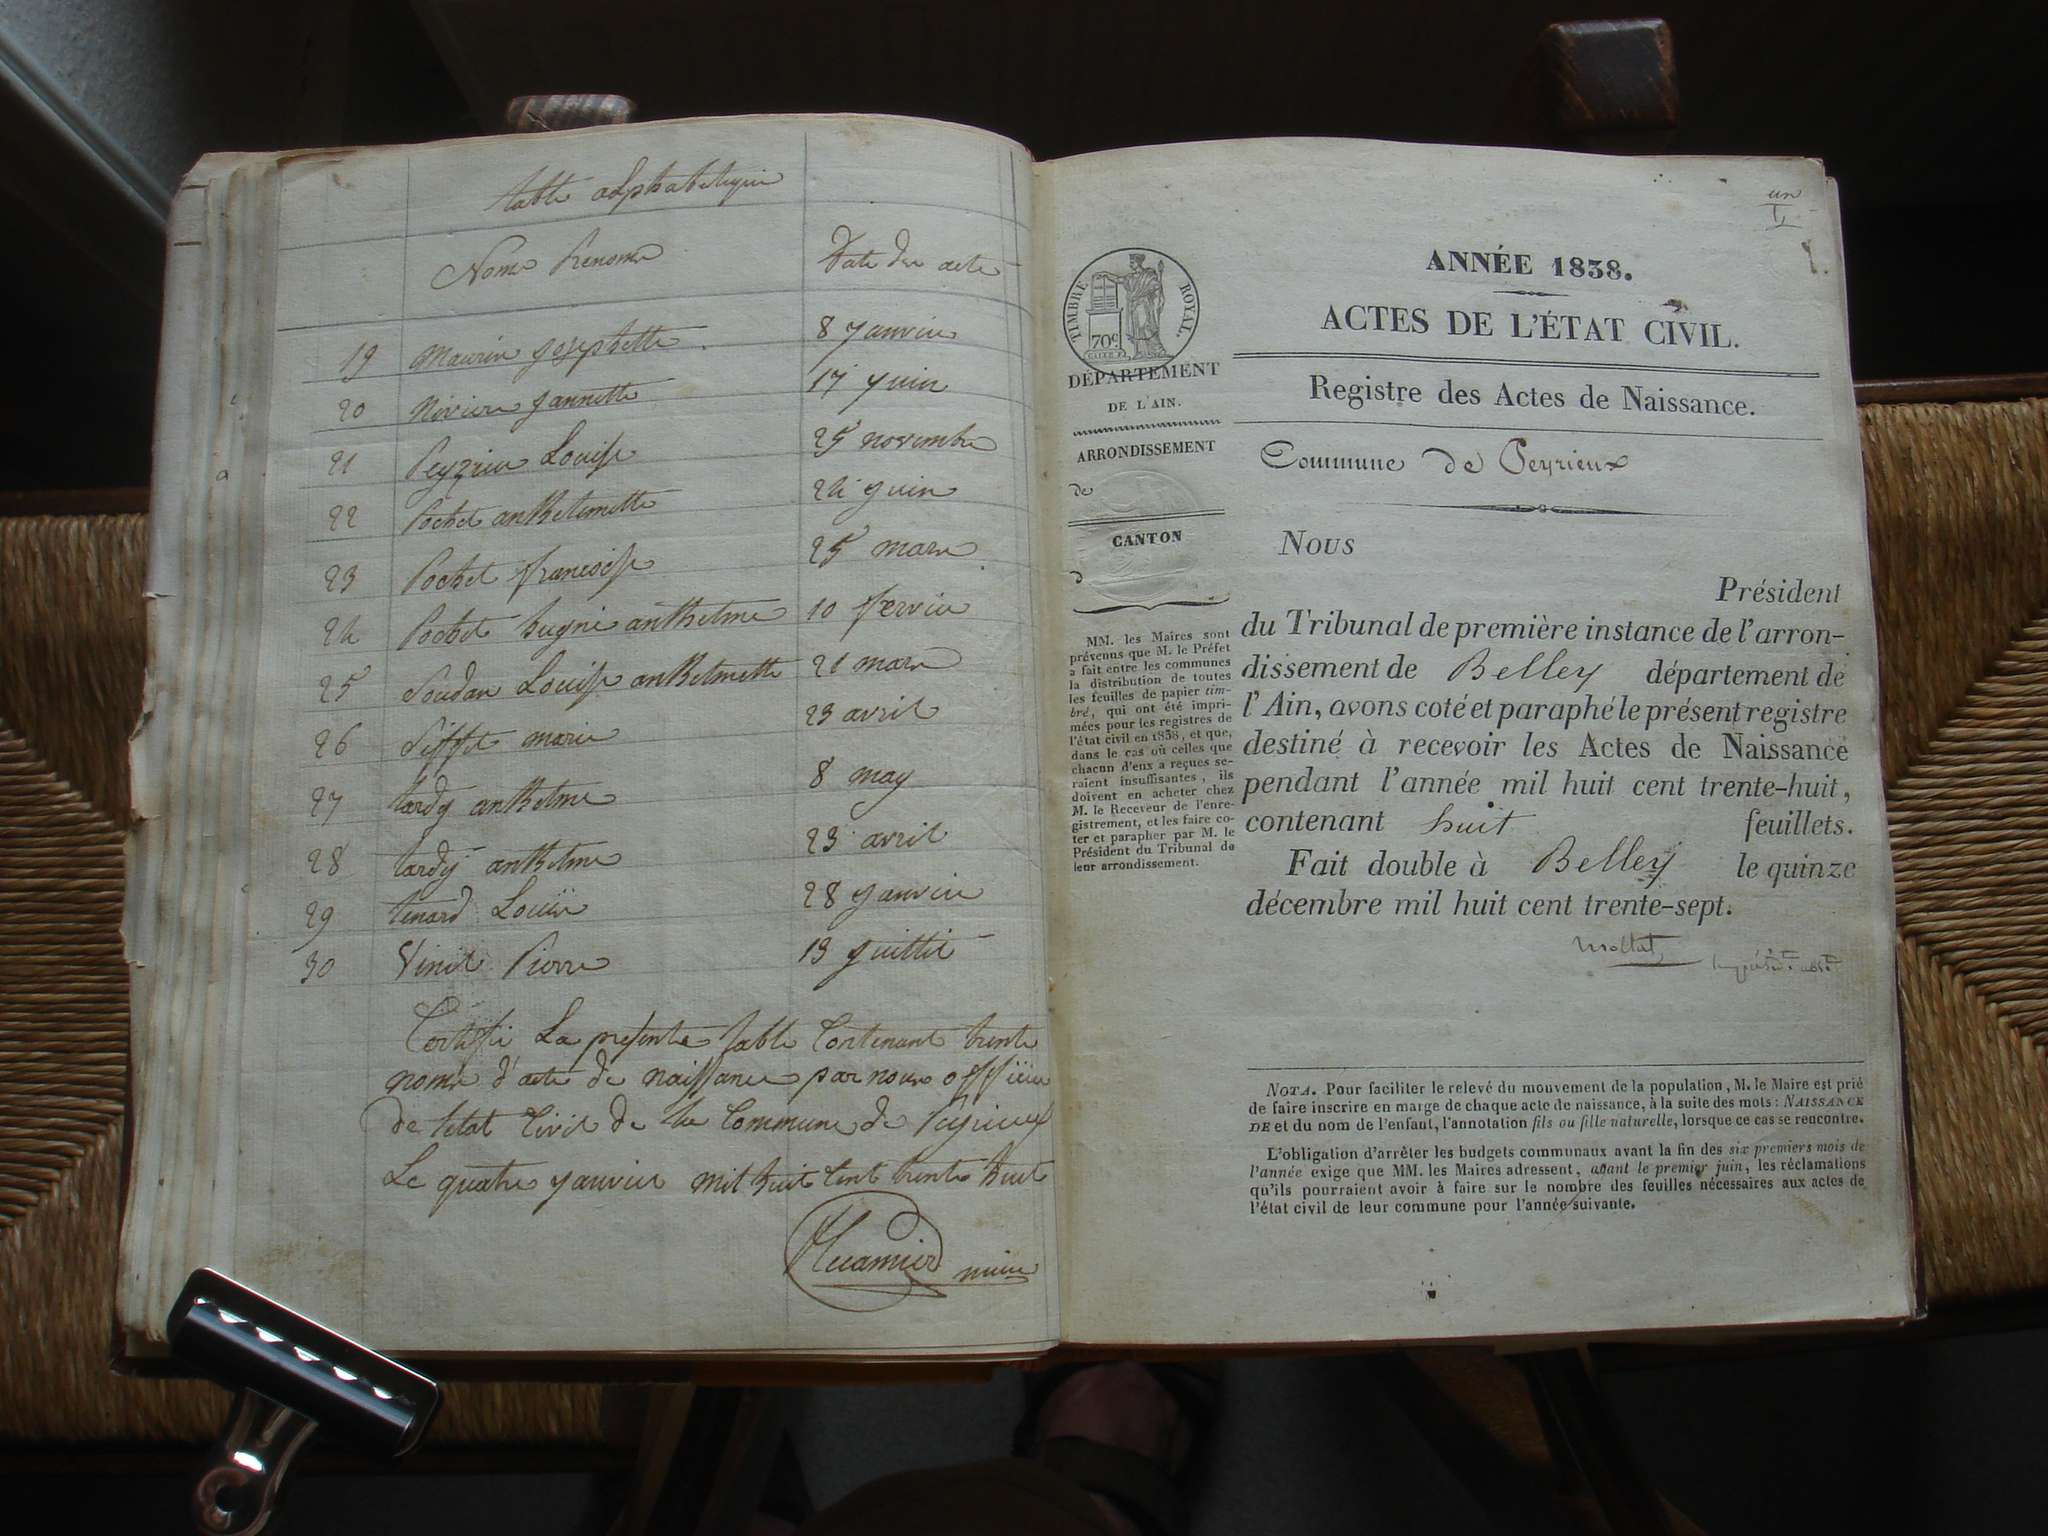 table alphabetique
Noms Prenoms Date des actes
19 Maurin josephette 8 janvier
20 Niviere jannette 17 juin
21 Peyzieu Louise 25 novembre
22 Pochet anthelmette 24 juin
23 Pochet francoise 25 mars
24 Pochet hugne anthelme 10 fevrier
25 Soudan Louise anthelmette 21 mars
26 Siffet marie 23 avril
27 tardy anthelme 8 may
28 tardy anthelme 23 avril
29 tenard Louise 28 janvier
30 Vinit Pierre 13 juillit
Certifie La presente table Contenant trente
noms d'acte de naissance par nous officier
de letat Civil de la Commune de Peyrieux
Le quatre janvier mil huit cent trente huit
maire
un
ANNÉE 1838.
ACTES DE L'ÉTAT CIVIL.
Registre des Actes de Naissance.
Commune de Peyrieux
TIMBRE ROYAL.
70c
DÉPARTEMENT
DE L'AIN.
ARRONDISSEMENT
de
CANTON
d
MM. les Maires sont
prévenus que M. le Préfet
a fait entre les communes
la distribution de toutes
les feuilles de papier tim-
bré, qui ont été impri-
mées pour les registres de
l'état civil en 1838, et que,
dans le cas où celles que
chacun d'eux a reçues se-
raient insuffisantes, ils
doivent en acheter chez
M. le Receveur de l'enre-
gistrement, et les faire co-
ter et parapher par M. le
Président du Tribunal de
leur arrondissement.
Nous
Président
du Tribunal de première instance de l'arron-
dissement de Belley département de
l'Ain, avons coté et paraphé le présent registre
destiné à recevoir les Actes de Naissance
pendant l'année mil huit cent trente-huit,
contenant huit feuillets.
Fait double à Belley le quinze
décembre mil huit cent trente-sept.
NOTA. Pour faciliter le relevé du mouvement de la population, M. le Maire est prié
de faire inscrire en marge de chaque acte de naissance, à la suite des mots: NAISSANCE
DE et du nom de l'enfant, l'annotation fils ou fille naturelle, lorsque ce cas se rencontre.
L'obligation d'arrêter les budgets communaux avant la fin des six premiers mois de
l'année exige que MM. les Maires adressent, avant le premier juin, les réclamations
qu'ils pourraient avoir à faire sur le nombre des feuilles nécessaires aux actes de
l'état civil de leur commune pour l'année suivante.